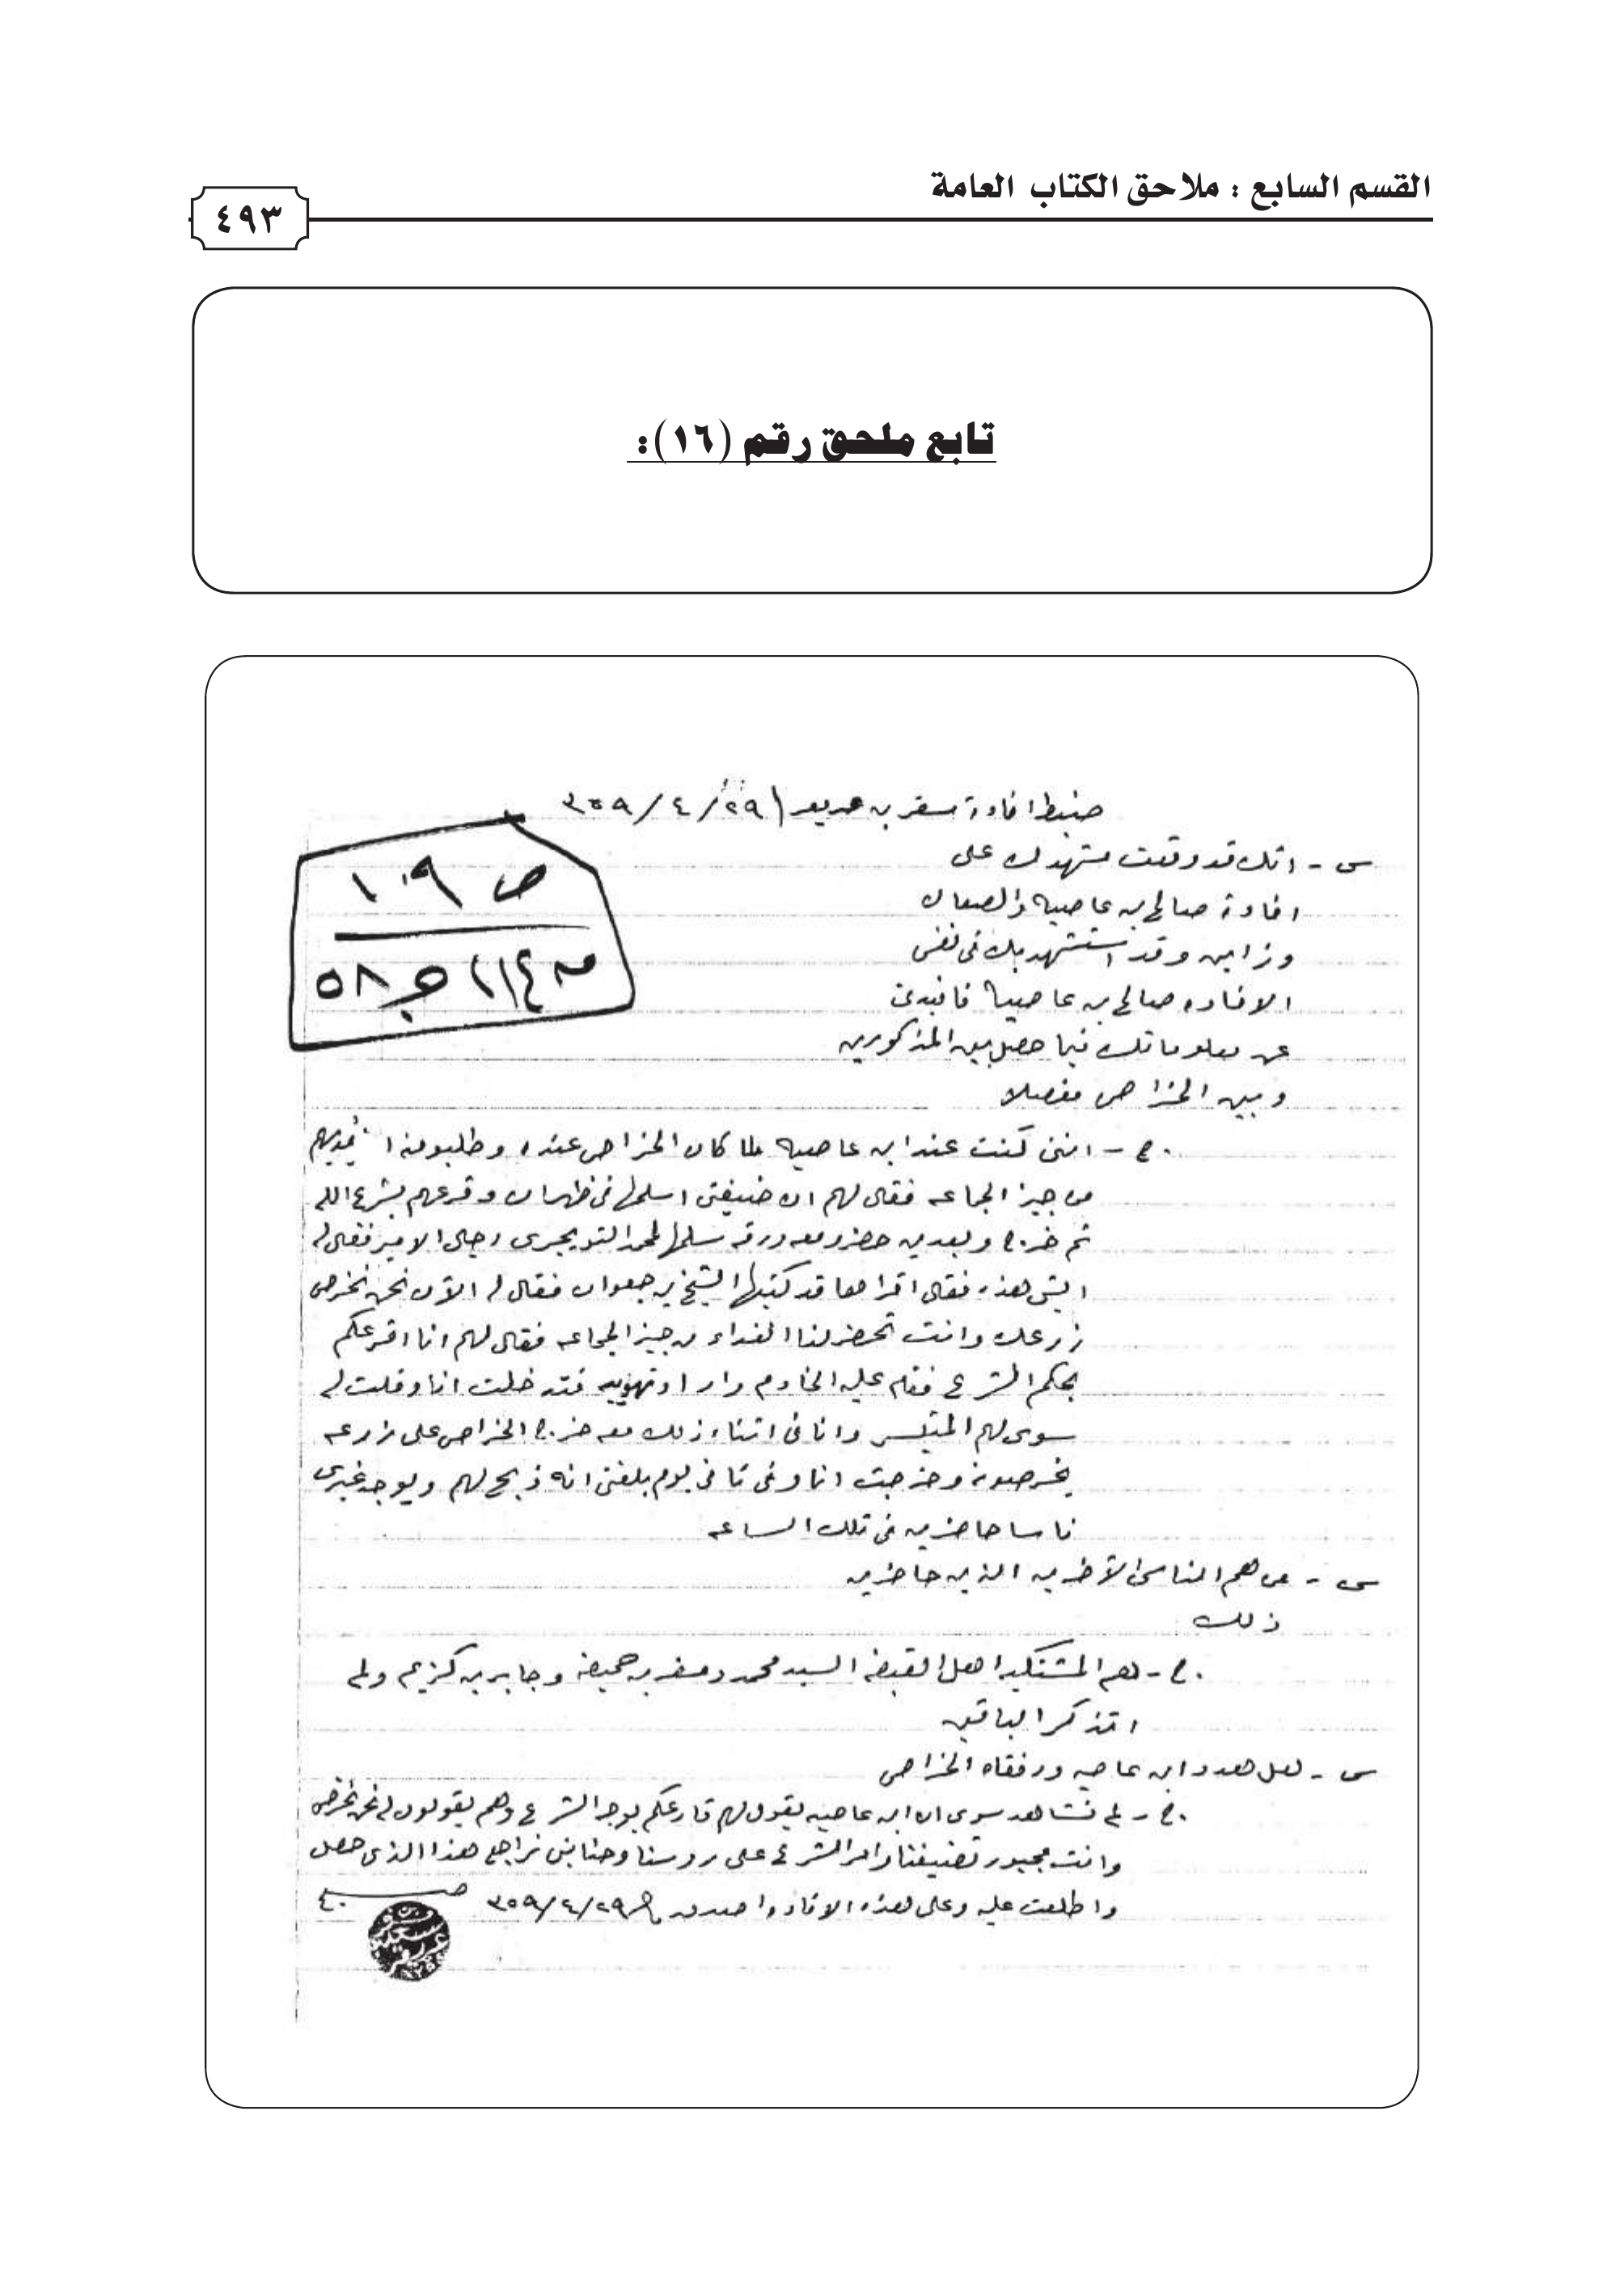 القسم السابع : ملاحق الكتاب العامة
٤٩٣
تابع ملحق رقم (١٦):
ضبط افادة مسفر بن ٢٩/٤/٣٥٩
س - انك قد وقعت على
افادة صالح بن عاصيه
وقد استشهد بك فى نفس
الافاده صالح بن عاصيه فافيدنى
عن معلوماتك فيما حصل بين المذكورين
وبين الخراص مفصلا
ص ١٠٩
٥٨
ج - اننى كنت عند ابن عاصيه لما كان الخراص عنده وطلبو منه
من جيز الجماعه فقال لهم ان ضيفتى اسلمها فى ظهران وقرعهم بشرع الله
ثم خرج وبعدين حضر ومعه ورقه سلمها لمحمد التويجرى رجال الامير فقال له
ايش هذه فقال اقراها قد كتبها الشيخ بن جعوان فقال له الآن نحن نخرص
زرعك وانت تحضر لنا الغداء من جيز الجماعه فقال لهم انا اقرعكم
بحكم الشرع فقام عليه الخادم فتدخلت انا وقلت له
سوى لهم المتيسر وانا فى اثناء ذلك معه خرج الخراص على زرعه
يخرصونه وخرجت انا وفى ثانى يوم بلغنى انه ذبح لهم ويوجد غيرى
ناسا حاضرين فى تلك الساعه
س - من هم الناس الآخرين الذين حاضرين
ذلك
ج - هم المشتكين اهل القبضه السيد محمد ومسفر بن حميضه وجابر بن كزيم ولم
اتذكر الباقين
س - هل هدد ابن عاصيه ورفقاه الخراص
ج - لم نشاهد سوى ان ابن عاصيه يقول لهم قارعكم بوجه الشرع وهم يقولون له نحن نخرص
وانت مجبور تضيفنا وامر الشرع على روسنا وحنا بنى نراجع هذا الذى حصل
واطلعت عليه وعلى هذه الافاده اصدق ٢٩/٤/٣٥٩